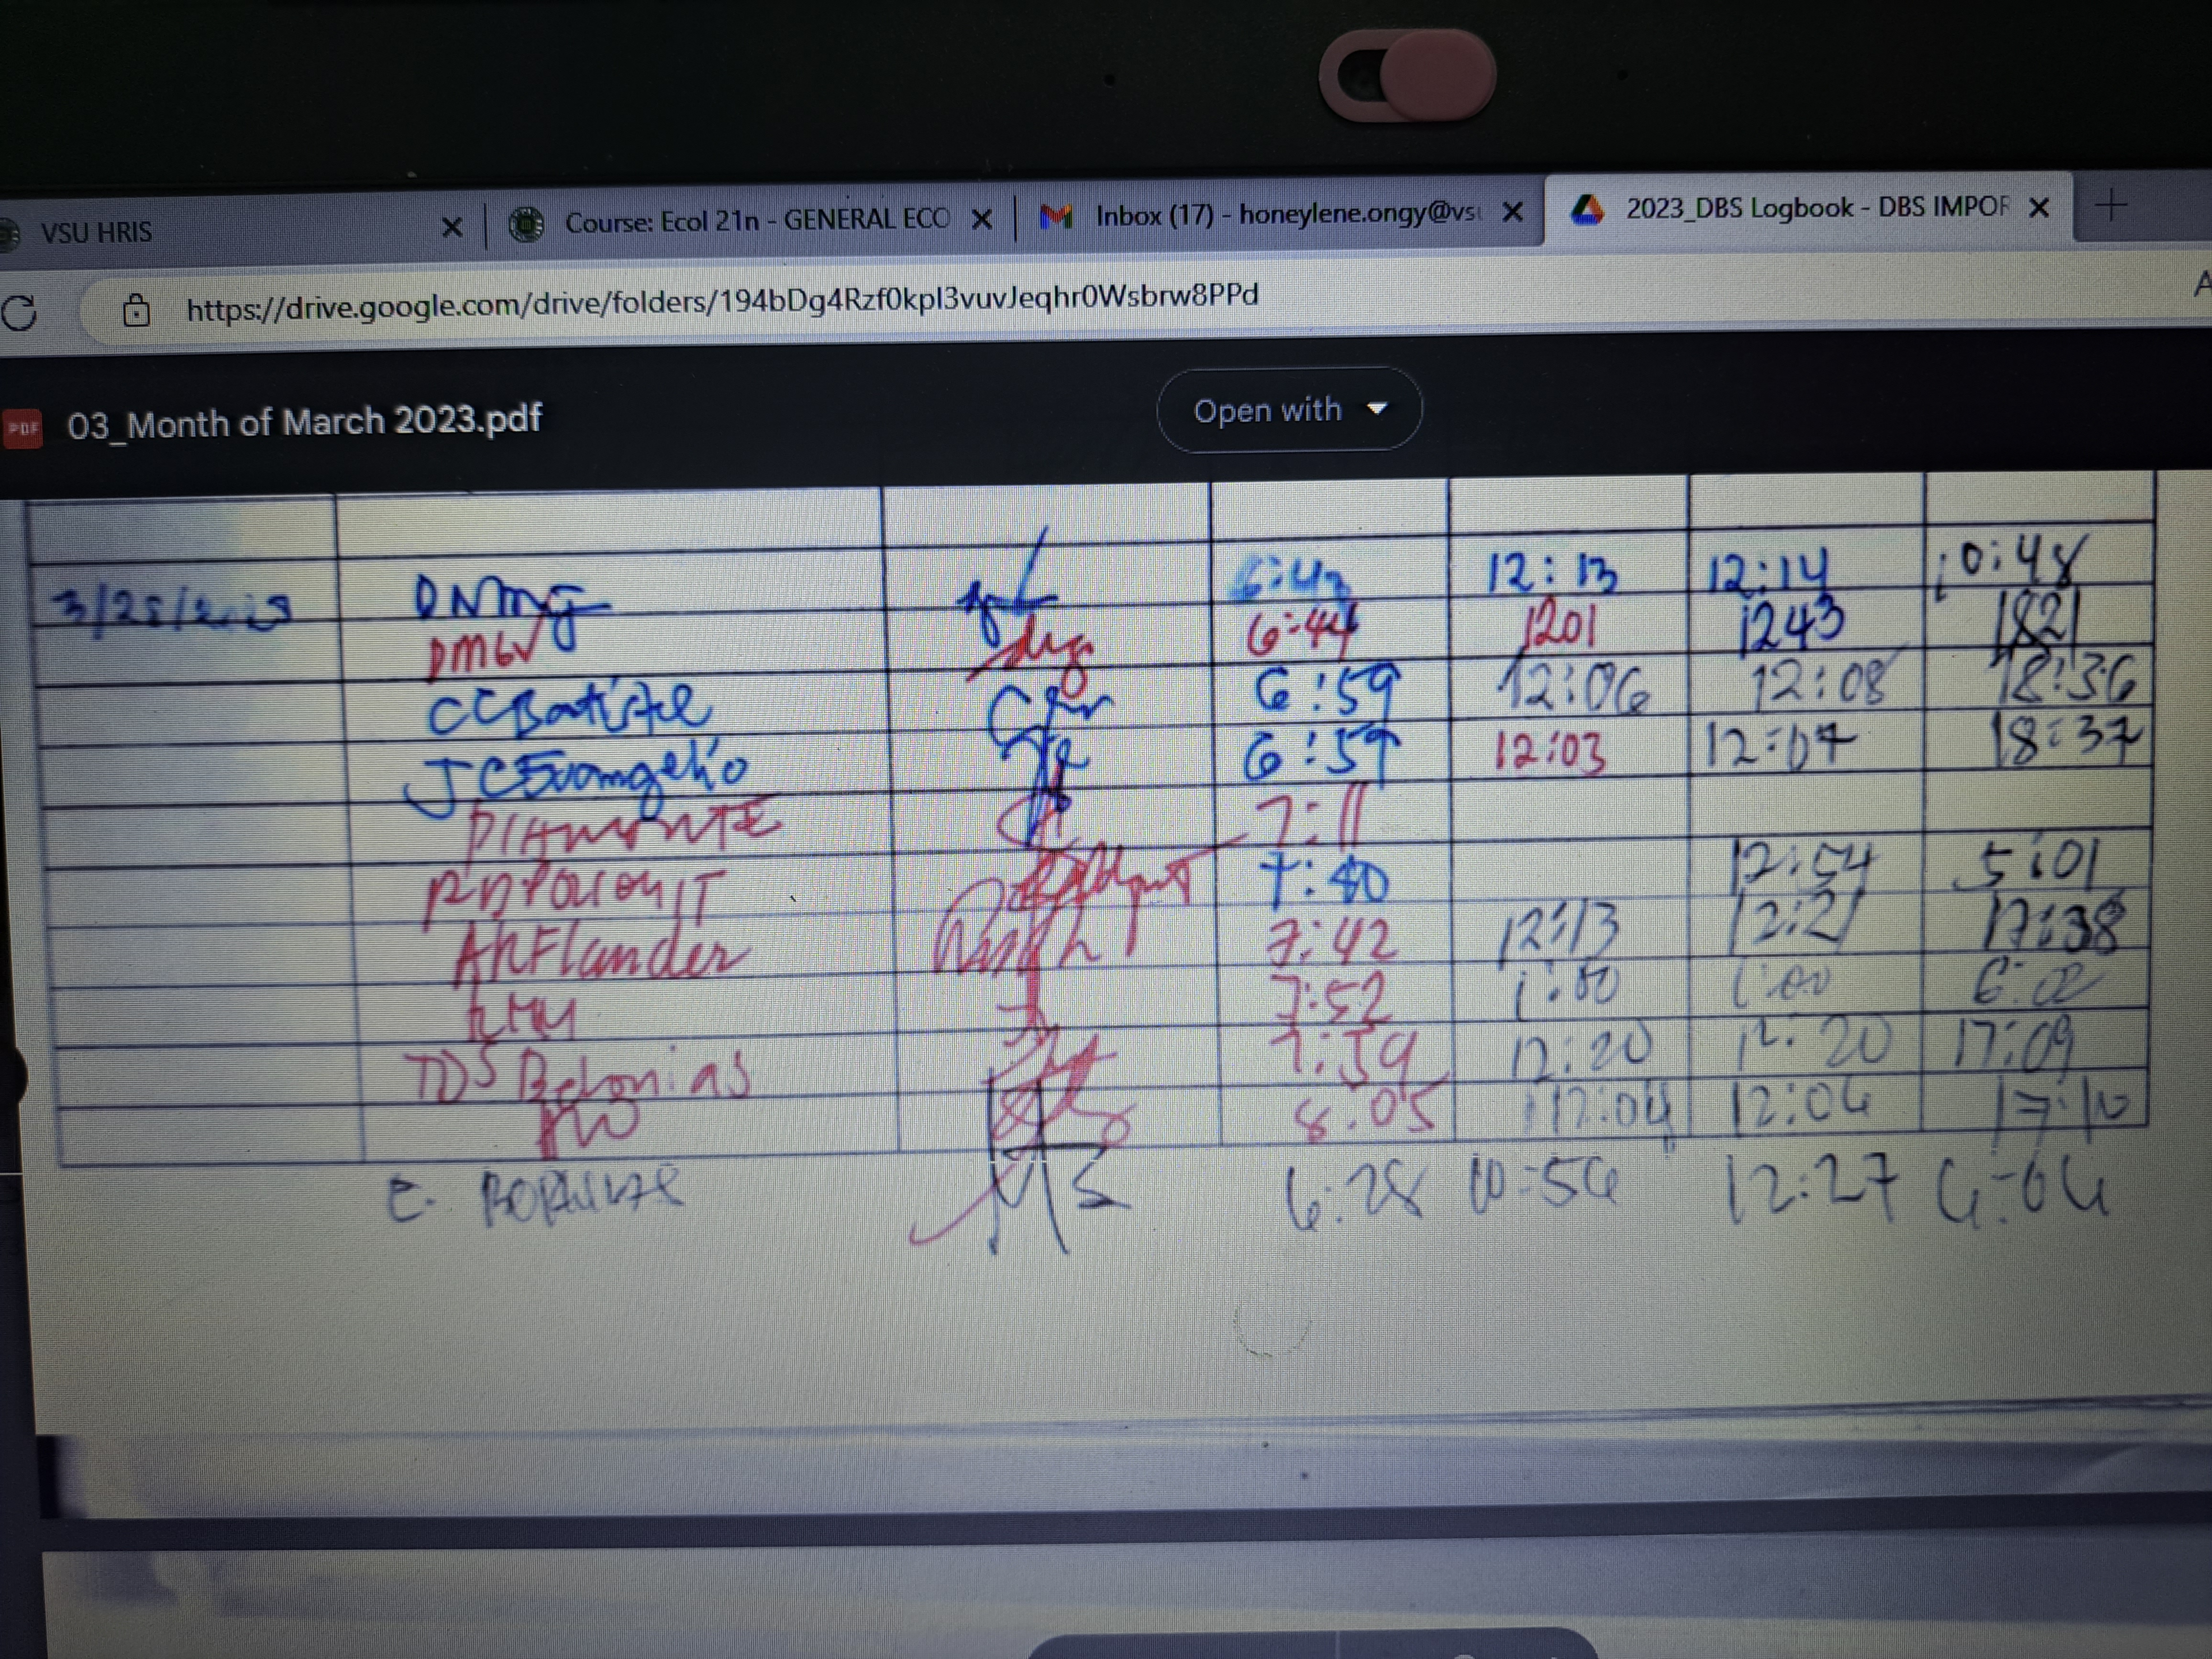 VSU HRIS Course: Ecol 21n - GENERAL ECO Inbox (17) - honeylene.ongy@vsu 2023_DBS Logbook - DBS IMPOR
https://drive.google.com/drive/folders/194bDg4Rzf0kpl3vuvJeqhr0Wsbrw8PPd A
PDF 03_Month of March 2023.pdf Open with
DNmg 12:13 12:14
DMGV 6:44 1201 1243 1821
CCBatistel 6:59 12:06 12:08 18:36
JCEvangelio 6:59 12:03 12:07 18:37
PIAMONTE 7:11
7:40 12:54 5:01
Flander 7:42 12:13 12:21 17:38
7:52 1:00 1:00 6:00
TDS Belonias 7:59 12:20 12:20 17:09
8:05 12:04 12:04 17:10
E. 6:28 10:54 12:27